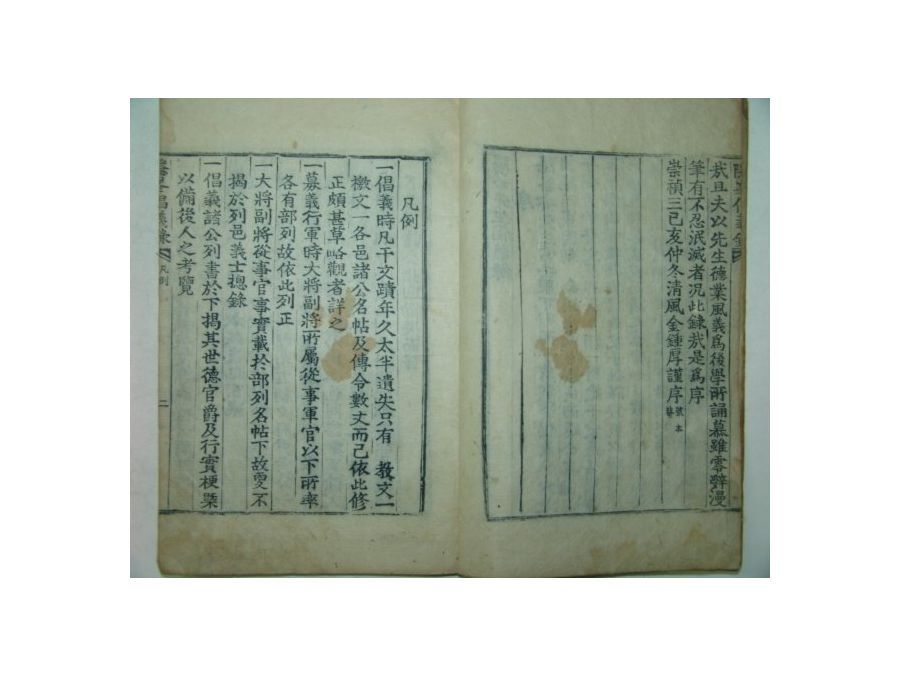 哉且夫以先生德業風義爲後學所誦慕雖零辭漫
筆有不忍泯滅者況此錄哉是爲序
崇禎三己亥仲冬淸風金鍾厚謹序
凡例
一倡義時凡干文蹟年久太半遺失只有 敎文一
檄文一各邑諸公名帖及傳令數丈而已依此修
正頗甚草略觀者詳之
一募義行軍時大將副將所屬從事軍官以下所率
各有部列故依此列正
一大將副將從事官事實載於部列名帖下故更不
揭於列邑義士摠錄
一倡義諸公列書於下揭其世德官爵及行實梗槩
以備後人之考覽
倡義錄
凡例
二